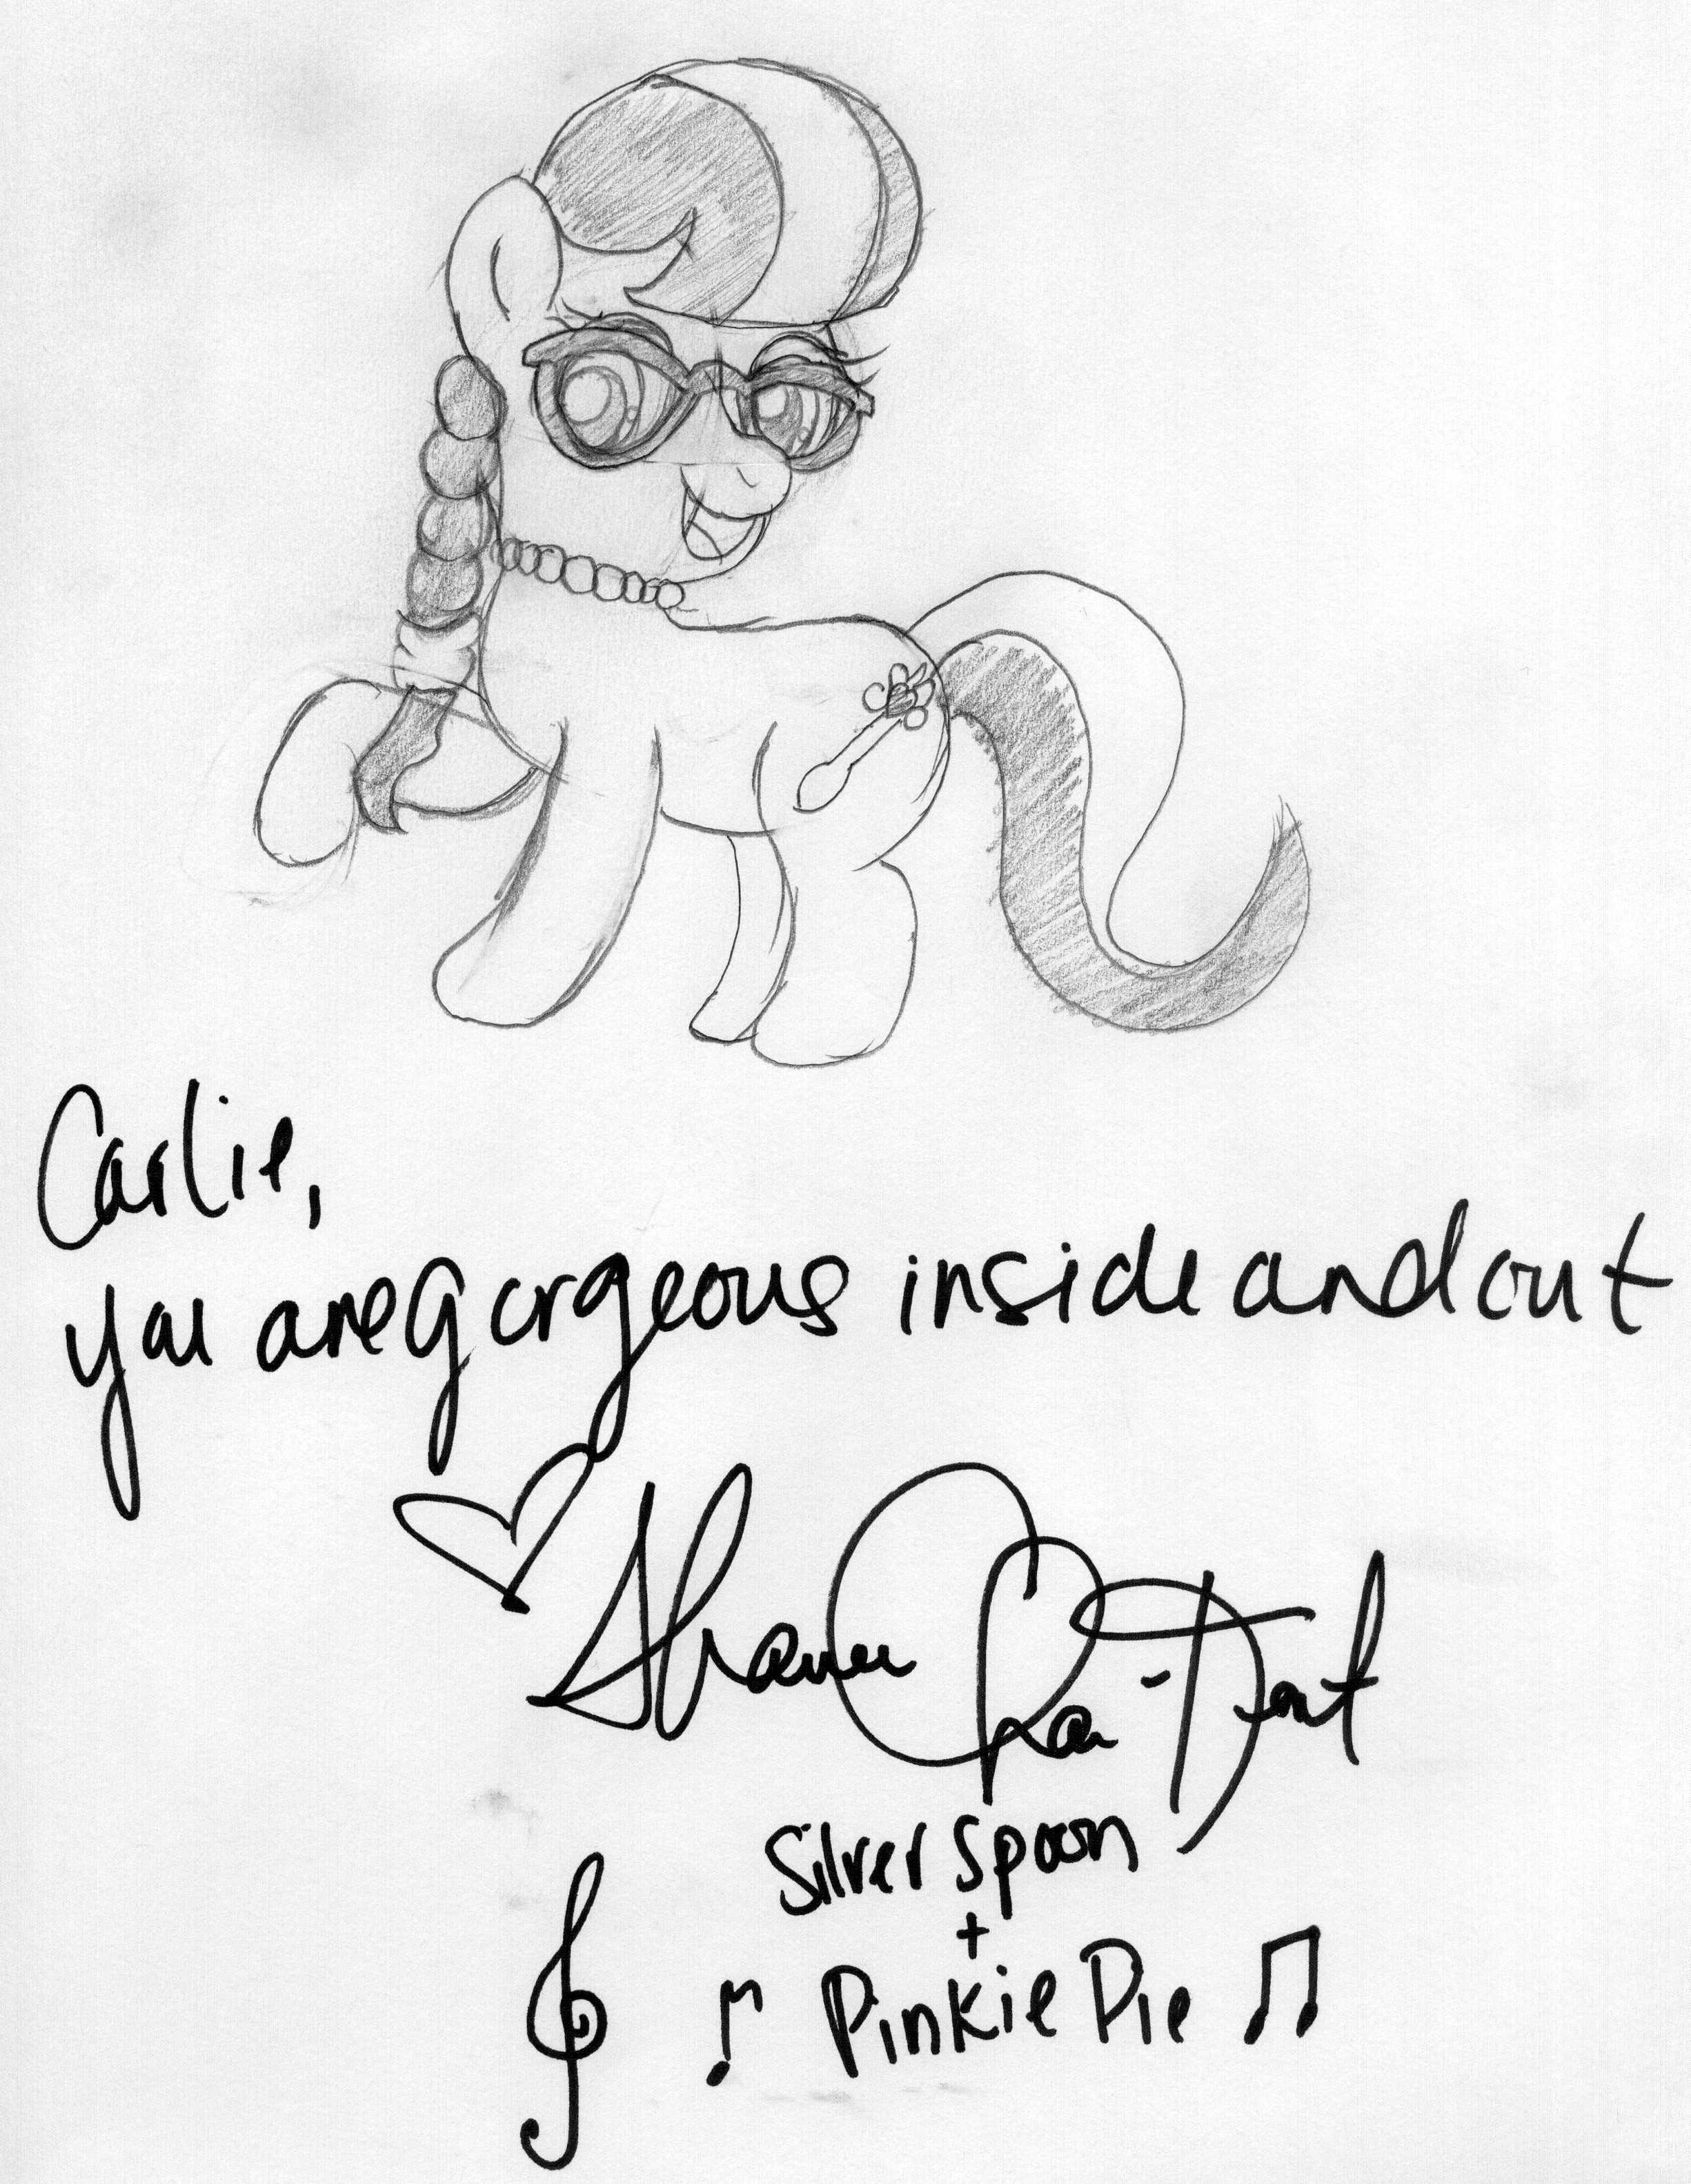 Carlie,
you are gorgeous inside and out
Shannon Chan-Kent
Silver Spoon
+
Pinkie Pie